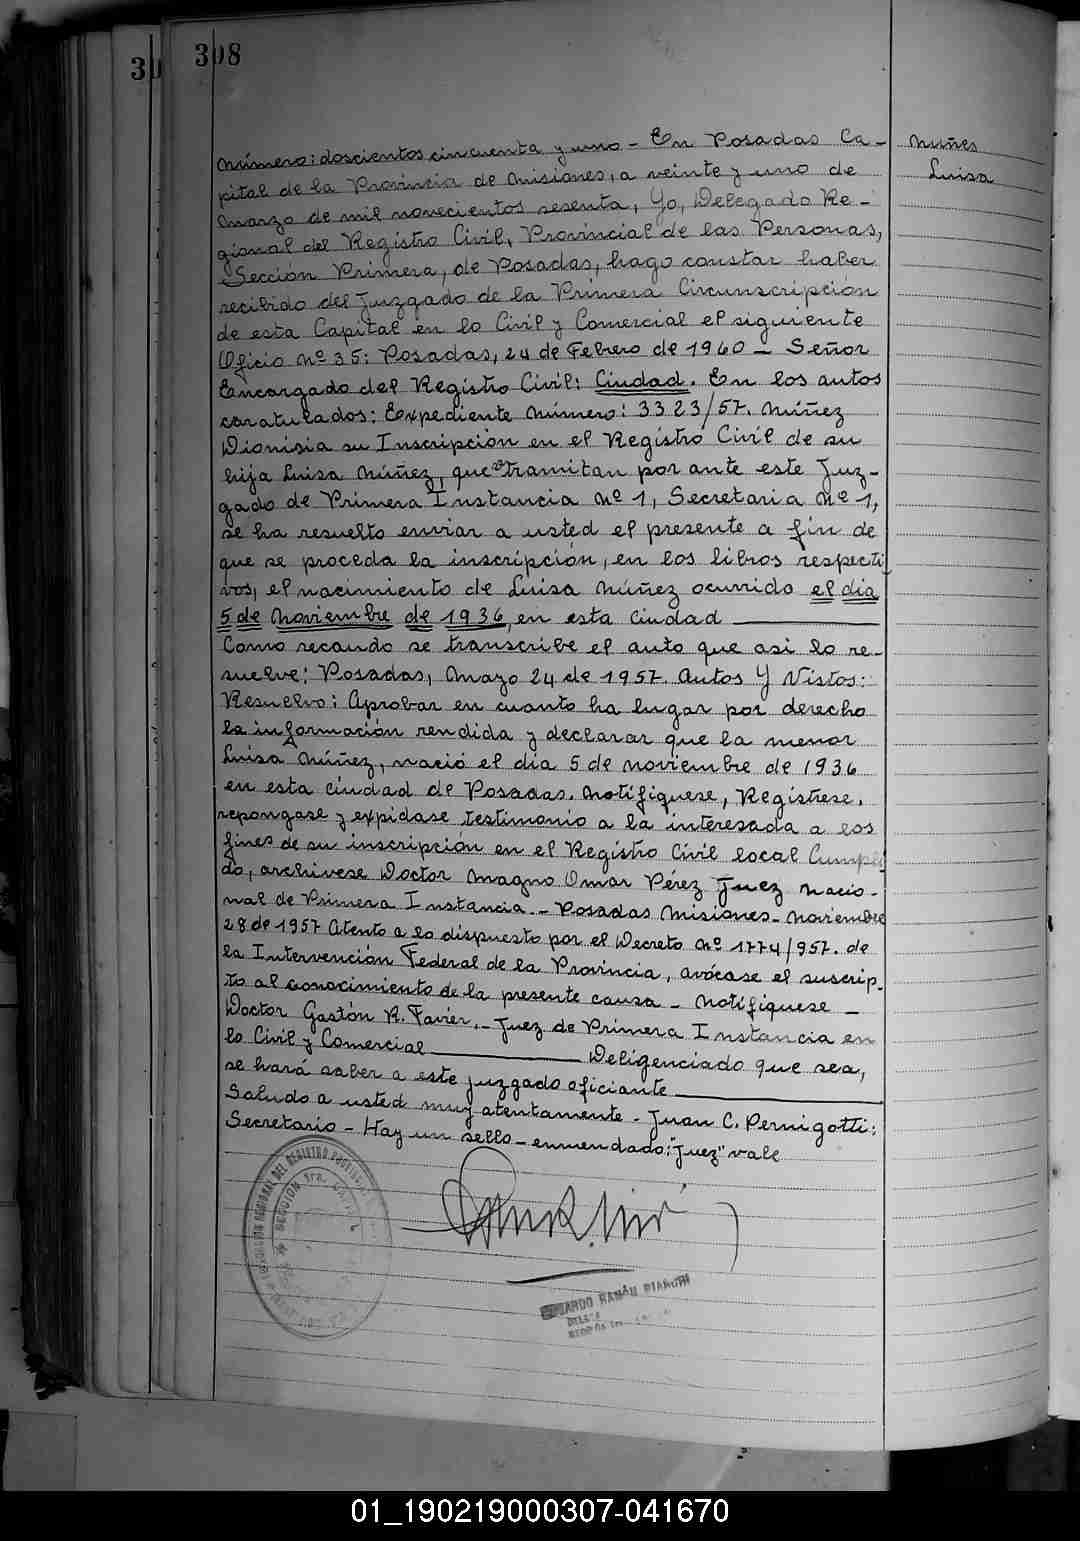 308
Número: doscientos cincuenta y uno - En Posadas Ca-
pital de la Provincia de Misiones, a veinte y uno de
Marzo de mil novecientos sesenta, Yo, Delegado Re-
gional del Registro Civil, Provincial de las Personas,
Sección Primera, de Posadas, hago constar haber
recibido del Juzgado de la Primera Circunscripción
de esta Capital en lo Civil y Comercial el siguiente
Oficio Nº 35: Posadas, 24 de Febrero de 1960 - Señor
Encargado del Registro Civil: Ciudad. En los autos
caratulados: Expediente Número: 3323/57. Núñez
Dionisia su Inscripción en el Registro Civil de su
hija Luisa Núñez, que tramitan por ante este Juz-
gado de Primera Instancia Nº 1, Secretaria Nº 1,
se ha resuelto enviar a usted el presente a fin de
que se proceda la inscripción, en los libros respecti
vos, el nacimiento de Luisa Núñez ocurrido el día
5 de Noviembre de 1936, en esta ciudad
Como recaudo se transcribe el auto que asi lo re-
suelve: Posadas, Mayo 24 de 1957. Autos Y Vistos:
Resuelvo: Aprobar en cuanto ha lugar por derecho
la información rendida y declarar que la menor
Luisa Núñez, nació el día 5 de noviembre de 1936
en esta ciudad de Posadas. Notifiquese, Registrese.
repongase y expidase testimonio a la interesada a los
fines de su inscripción en el Registro Civil local Cumpli
do, archivese Doctor Magno Omar Pérez Juez Nacio-
nal de Primera Instancia. - Posadas Misiones - Noviembre
28 de 1957 Atento a lo dispuesto por el Decreto Nº 1774/957. de
la Intervención Federal de la Provincia, avócase el suscrip-
to al conocimiento de la presente causa - Notifiquese -
Doctor Gastón R. Favier. - Juez de Primera Instancia en
lo Civil y Comercial Deligenciado que sea,
se hará saber a este juzgado oficiante
Saludo a usted muy atentamente - Juan C. Pernigotti:
Secretario - Hay un sello - enmendado: "Juez" vale
Nuñes
Luisa
RAMÓN
01_190219000307-041670